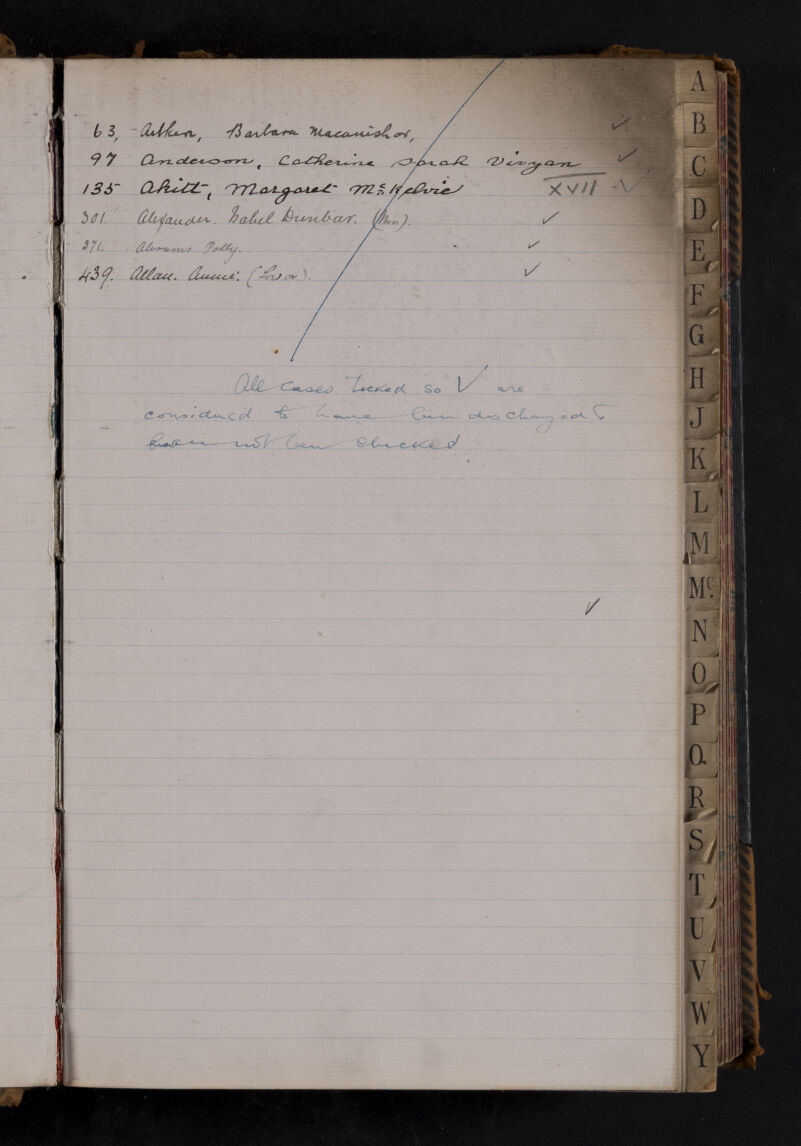 63, Aitken, Barbara Macanish or, ✓
97 Anderson, Catherine Sarah Vivyan ✓
135 Akitt, Margaret McKelvie XVII ✓
301. Alexander. Isabel Dunbar. (Mrs). ✓
371. Abrams. Polly. ✓
439. Allan. Annie. ✓
All cases ticked so ✓ are
consider'd to have been discharged &
have not been checked
✓
A
B
C
D
E
F
G
H
J
K
L
M
Mc.
N
O
P
Q.
R
S
T
U
V
W
Y